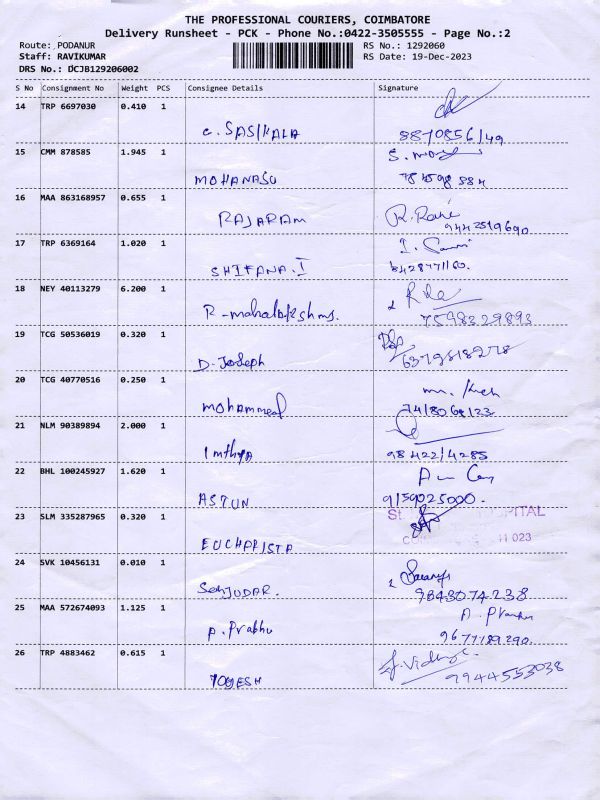 THE PROFESSIONAL COURIERS, COIMBATORE
Delivery Runsheet - PCK - Phone No.:0422-3505555 - Page No.:2
Route: PODANUR RS No.: 1292060
Staff: RAVIKUMAR RS Date: 19-Dec-2023
DRS No.: DCJB129206002
S No Consignment No Weight PCS Consignee Details Signature
14 TRP 6697030 0.410 1
C. SASIKALA
15 CMM 878585 1.945 1
MOHANASU
16 MAA 863168957 0.655 1 R. Rani
RAJARAM 9442519690
17 TRP 6369164 1.020 1
SHIFANA.I
18 NEY 40113279 6.200 1
7598329893
19 TCG 50536019 0.320 1
D. Joseph
20 TCG 40770516 0.250 1
mohammed
21 NLM 90389894 2.000 1
Imthya 98422/4285
22 BHL 100245927 1.620 1
ASTUN 9159025000.
23 SLM 335287965 0.320 1 HOSPITAL
EUCHARISTA 023
24 SVK 10456131 0.010 1
9843074238
25 MAA 572674093 1.125 1
P. Prabhu 9677789290.
26 TRP 4883462 0.615 1
YOGESH 9944553038